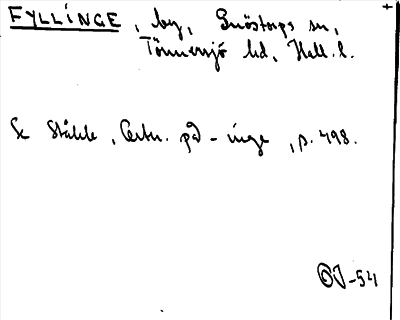 FYLLINGE, by, Snöstorps sn,
Tönnersjö hd, Hall. l.
Se Ståhle, Ortn. på -inge, p. 498.
OJ-54